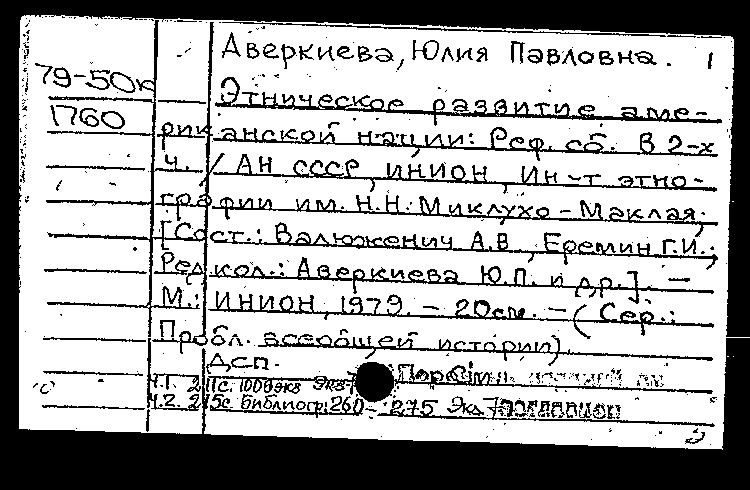 Аверкиева, Юлия Павловна. 1
79-50к
Этническое развитие аме-
1760
риканской нации: Реф. сб. В 2-х
ч. / АН СССР, ИНИОН, Ин-т этно-
графии им. Н.Н. Миклухо-Маклая;
[Сост.: Валюженич А.В., Еремин Г.И.;
Редкол.: Аверкиева Ю.П. и др.]. -
М.: ИНИОН, 1979. - 20см. - (Сер.:
Пробл. всеобщей истории)
ДСП.
Ч.1. 1000экз Экз
Ч.2. Библиогр: 260-275 Экз